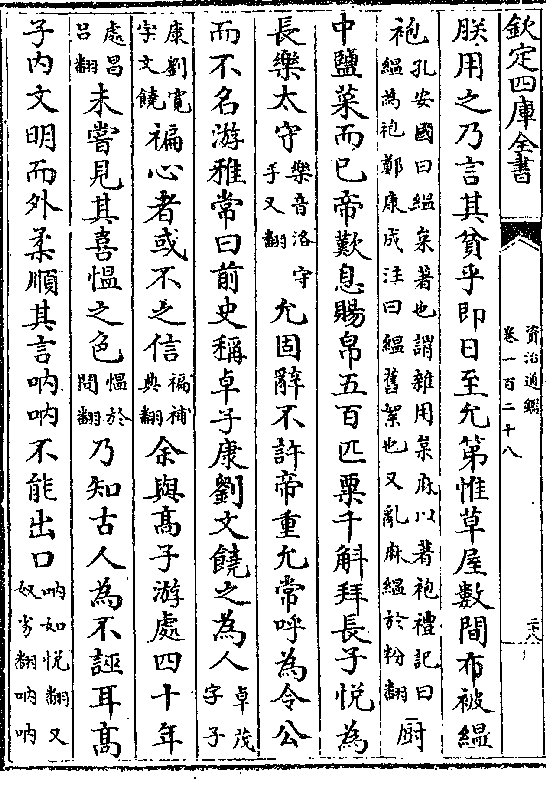 欽定四庫全書
資治通鑑
卷一百二十八
二十八
朕用之乃言其貧乎即日至允第惟草屋數間布被緼
袍孔安國曰緼枲著也謂雜用枲麻以著袍禮記曰
緼為袍鄭康成注曰緼舊絮也又亂麻緼於粉翻厨
中鹽菜而已帝歎息賜帛五百匹粟千斛拜長子悦為
長樂太守樂音洛守
手又翻允固辭不許帝重允常呼為令公
而不名游雅常曰前史稱卓子康劉文饒之為人卓茂
字子
康劉寛
字文饒褊心者或不之信褊補
典翻余與高子游處四十年
處昌
吕翻未嘗見其喜愠之色愠於
問翻乃知古人為不誣耳高
子内文明而外柔順其言呐呐不能出口呐如悦翻又
奴劣翻呐呐